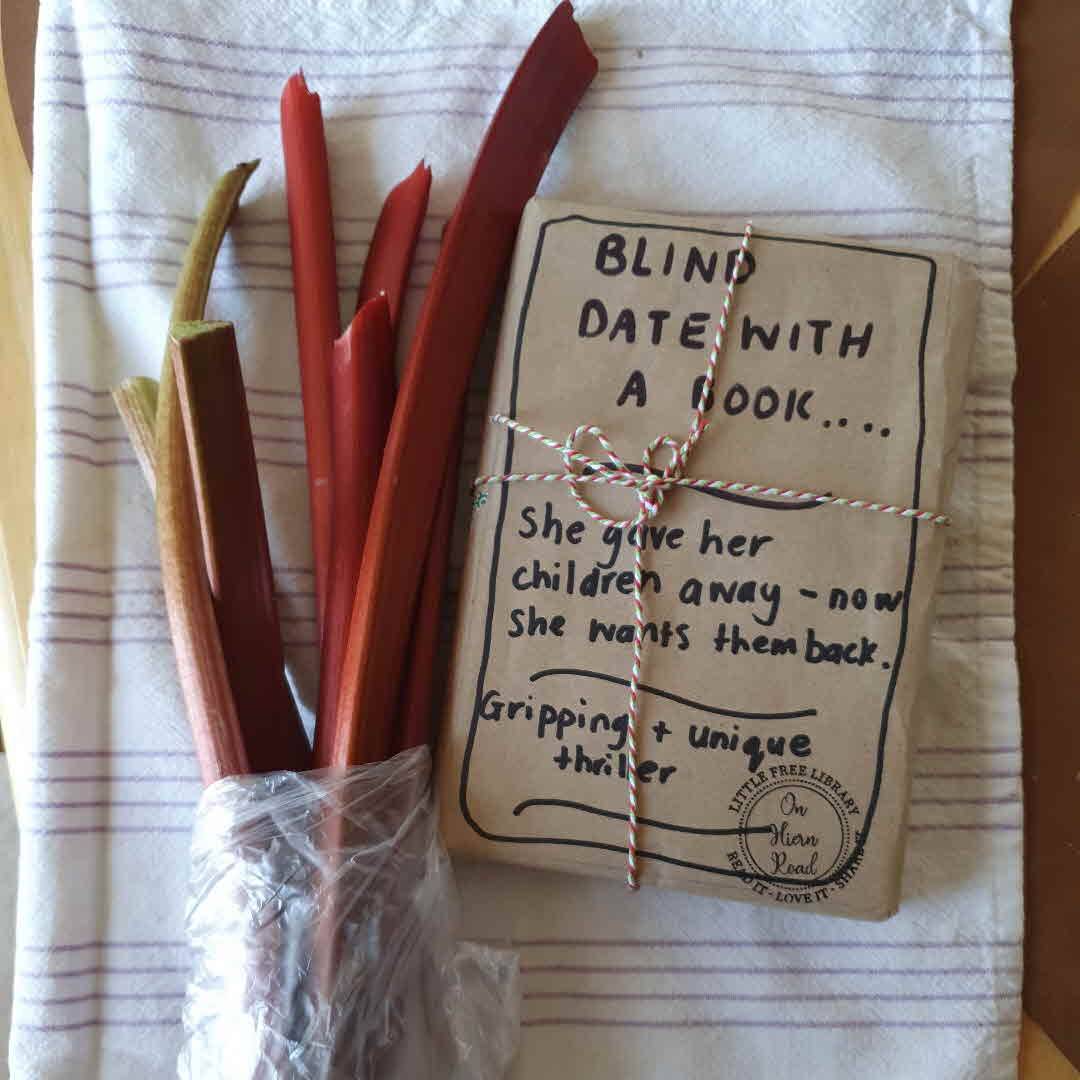 BLIND
DATE WITH
A BOOK....
She gave her
children away - now
she wants them back.
Gripping + unique
thriller
LITTLE FREE LIBRARY
On
Hiern
Road
READ IT - LOVE IT - SHARE IT